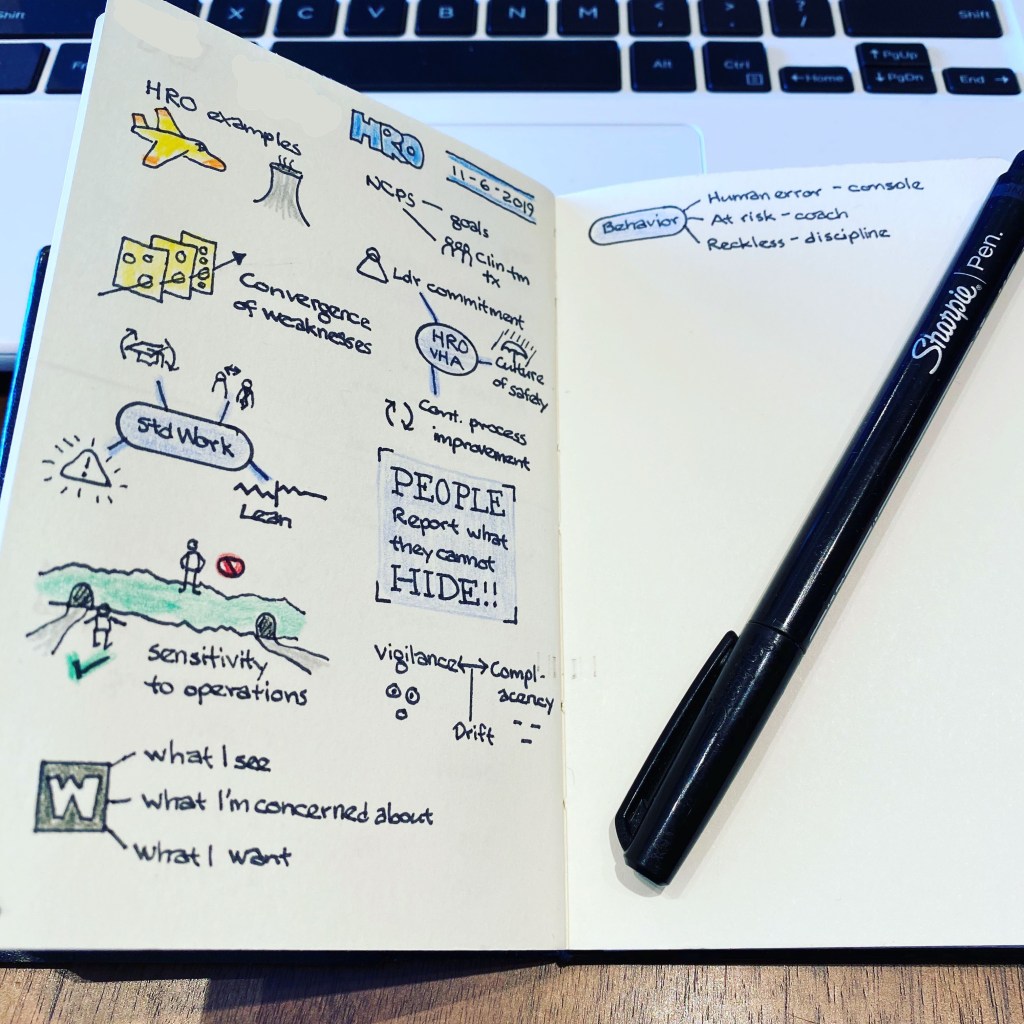 Shift
X
C
V
B
N
M
<
,
>
.
?
/
Shift
Alt
Ctrl
←Home
↑PgUp
↓PgDn
End →
HRO examples
HRO
11-6-2019
NCPS – goals
Clin-tm
tx
Convergence
of weaknesses
Ldr commitment
HRO
VHA
Culture
of safety
Cont. process
improvement
Std Work
!
Lean
PEOPLE
Report what
they cannot
HIDE!!
sensitivity
to operations
Vigilance ↔ Compl-
acency
Drift
W
what I see
what I'm concerned about
what I want
Behavior
Human error – console
At risk – coach
Reckless – discipline
Sharpie® | Pen.